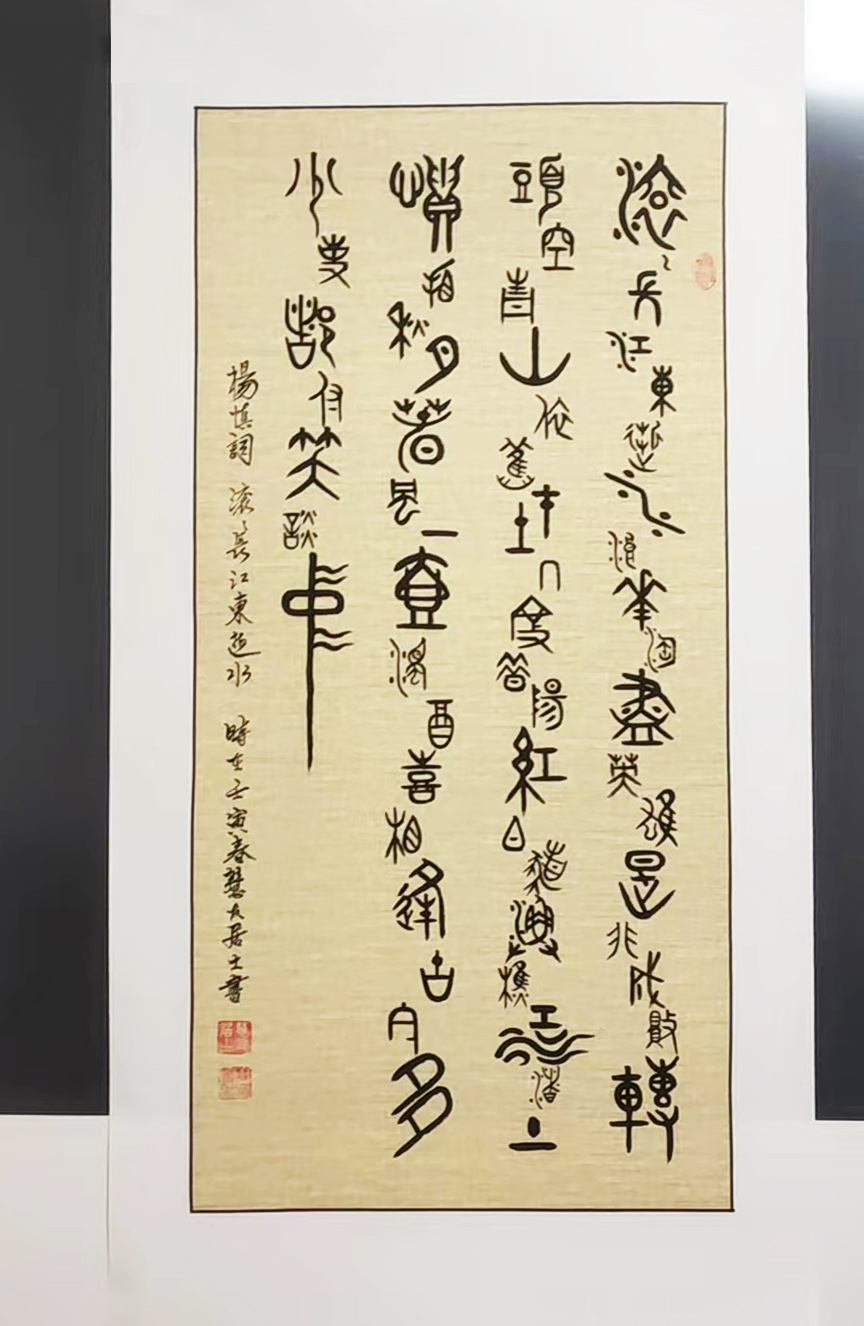 滾〻長江東逝水浪花淘盡英雄是非成敗轉
頭空青山依舊在几度夕陽紅白髮漁樵江渚上
慣看秋月春風一壺濁酒喜相逢古今多
少事都付笑談中
楊慎詞 滾〻長江東逝水 時在壬寅春慧友居士書